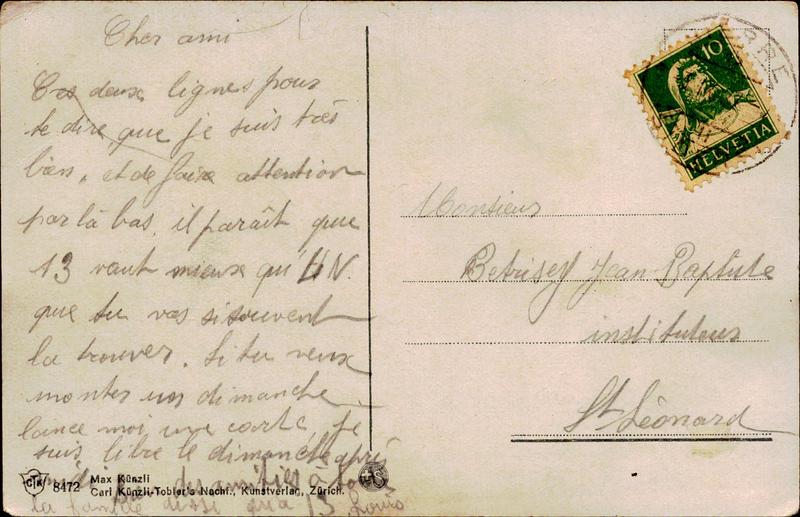 Cher ami
Ces deux lignes pour
te dire que je suis très
bien, et de faire attention
par là bas. il paraît que
13 vaut mieux qu'UN.
que tu vas si souvent
la trouver. Si tu veux
monter un dimanche
lance moi une carte, je
suis libre le dimanche après
midi amitiés à
la famille 13 Louis
10
HELVETIA
Monsieur
Betrisey Jean-Baptiste
instituteur
St Léonard
CTK 8472 Max Künzli
Carl Künzli-Tobler's Nachf., Kunstverlag, Zürich.